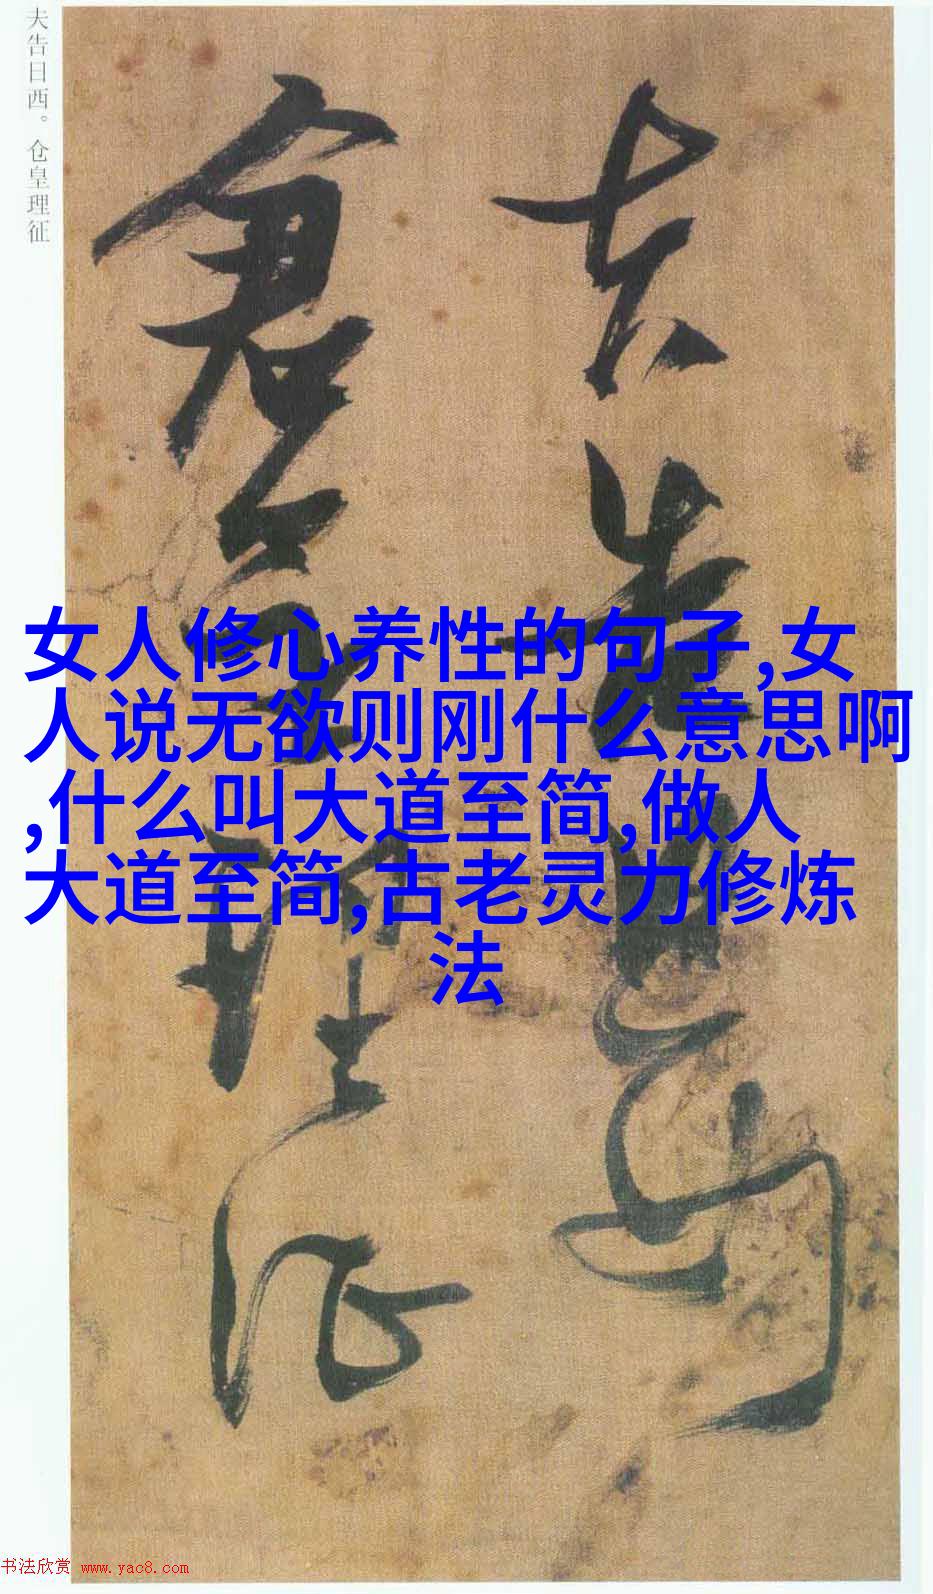 夫告日西。仓皇理征
夫告日西
仓皇理征
女人修心养性的句子,女
人说无欲则刚什么意思啊
,什么叫大道至简,做人
大道至简,古老灵力修炼
法
书法欣赏 www.yac8.com